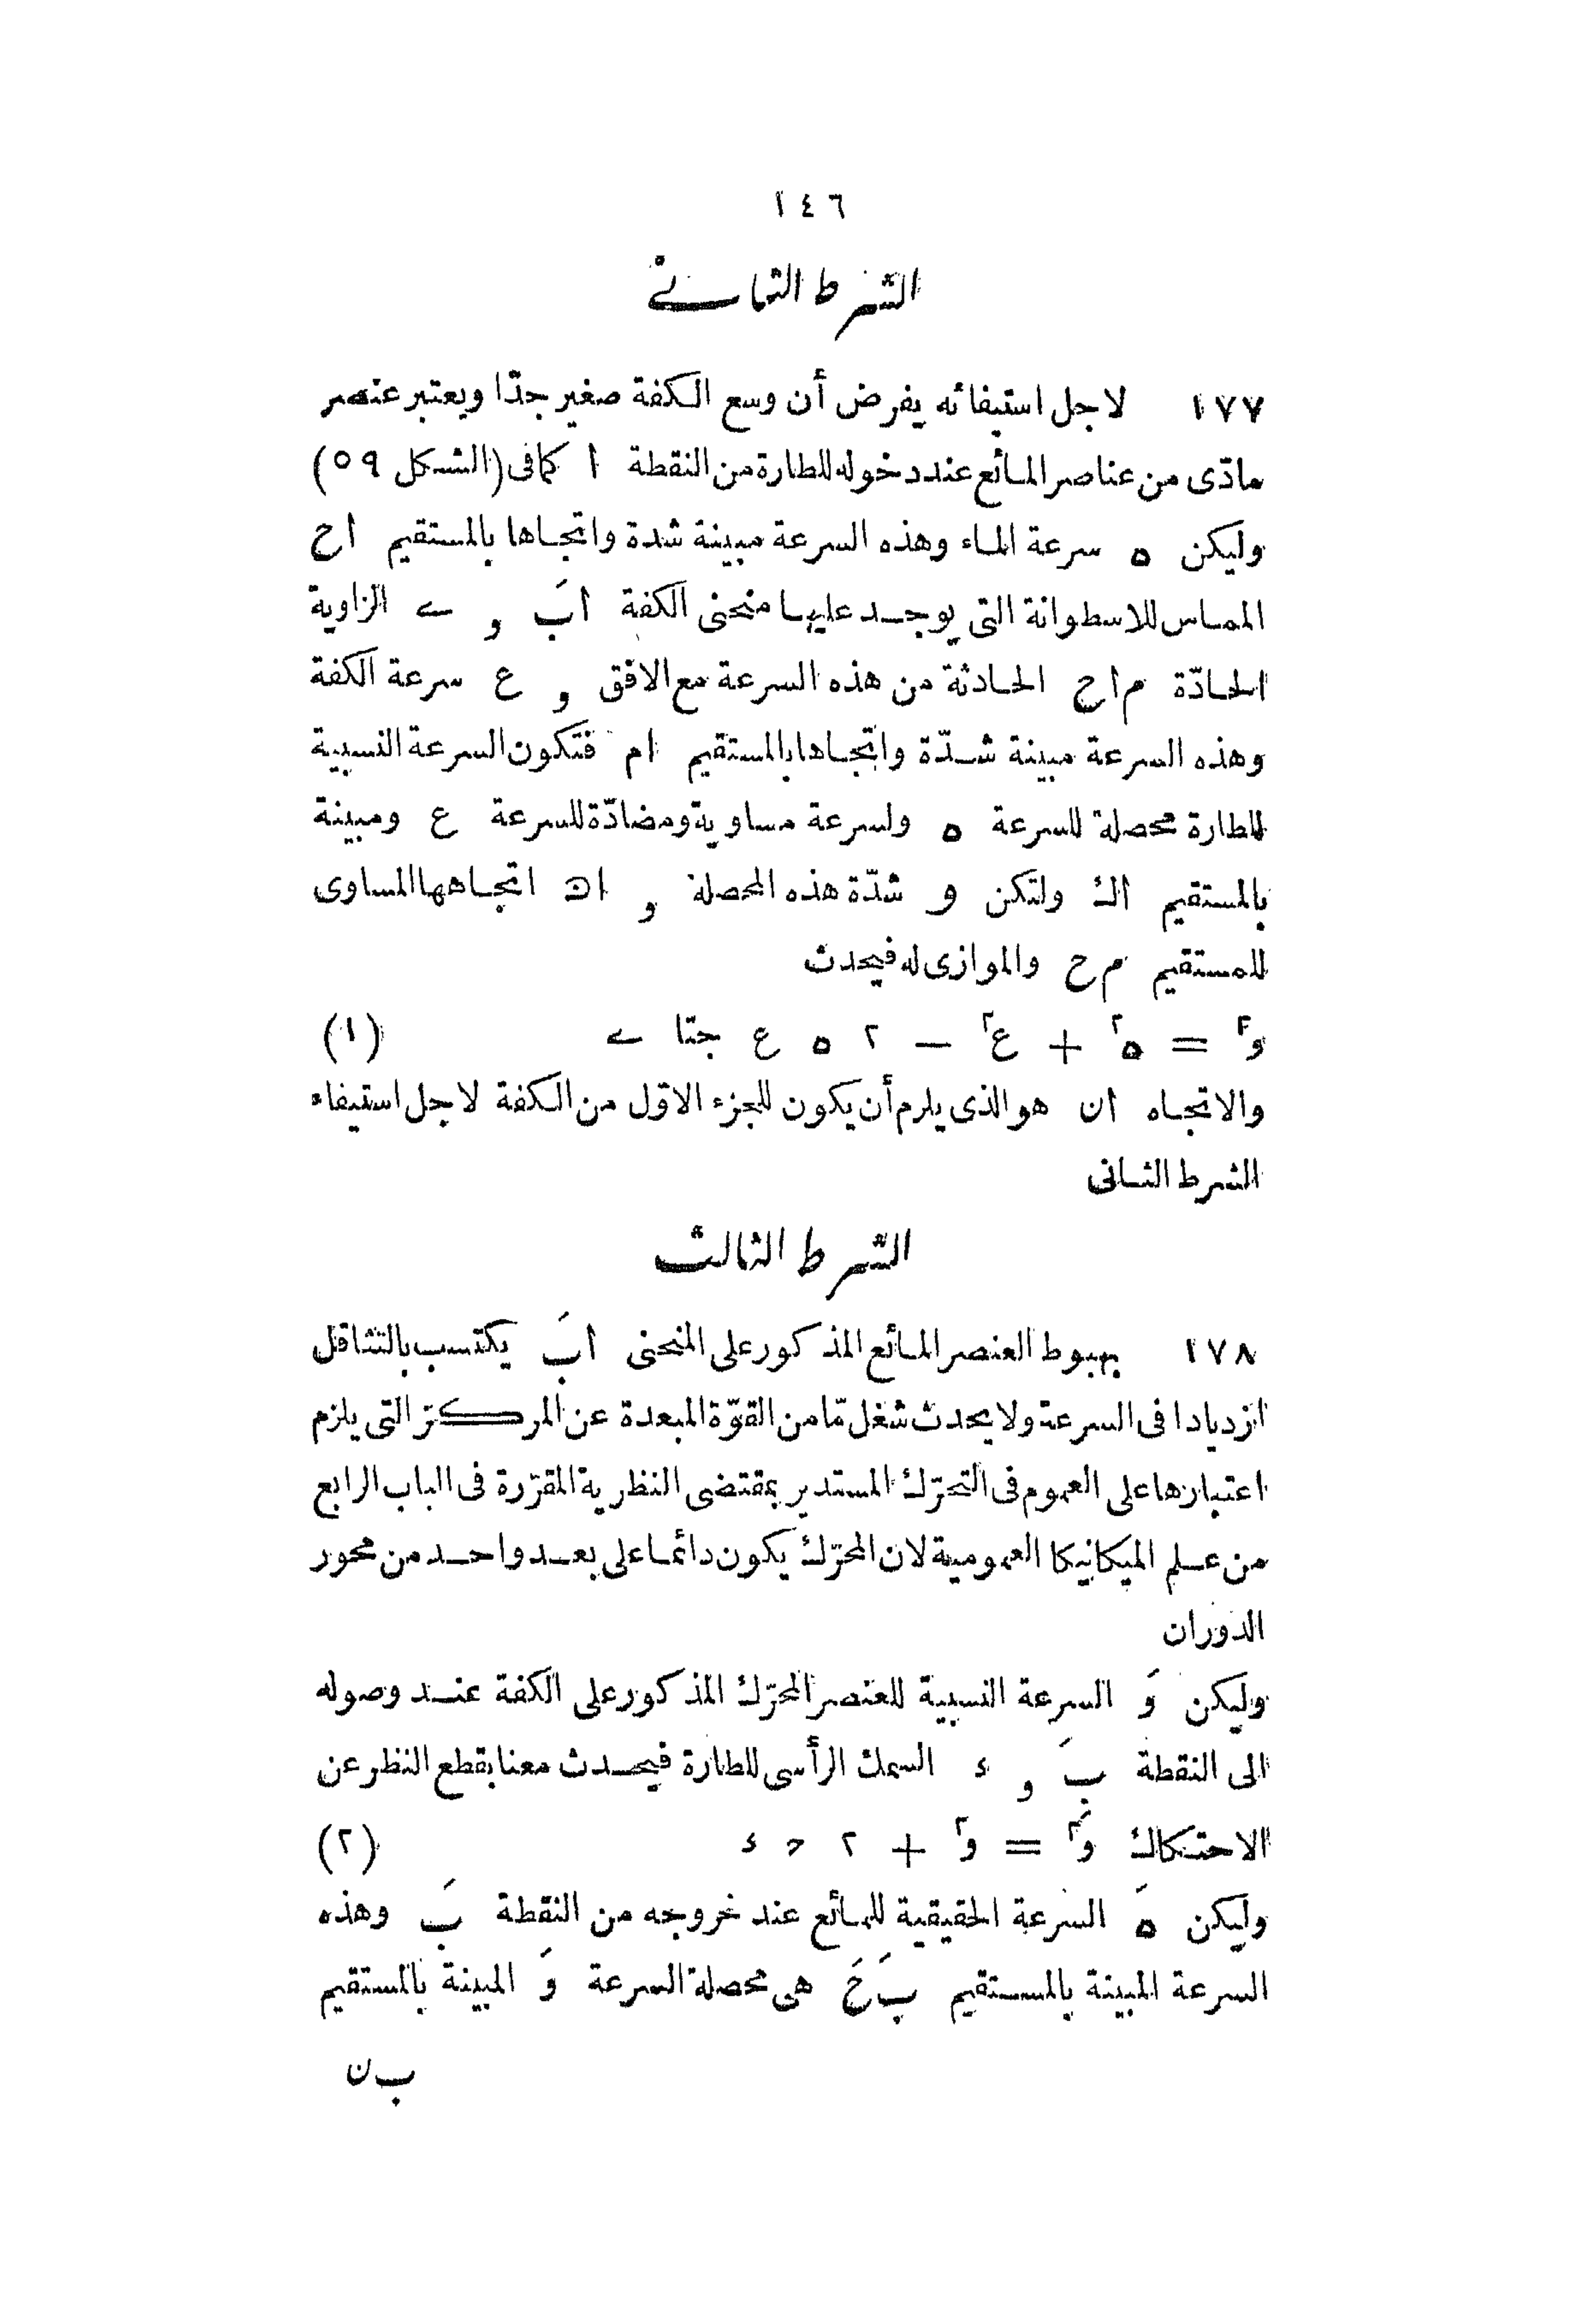 ١٤٦
الشرط الثانى
١٧٧ لاجل استيفائه يفرض أن وسع الكفة صغير جدّا ويعتبر عنصر
مادّى من عناصر المائع عند دخوله للطارة من النقطة ا كما فى (الشكل ٥٩)
وليكن ه سرعة الماء وهذه السرعة مبينة شدة واتجاها بالمستقيم اح
المماس للاسطوانة التى يوجد عليها منحنى الكفة ابَ و ے الزاوية
الحادّة م‍اح الحادثة من هذه السرعة مع الافق و ع سرعة الكفة
وهذه السرعة مبينة شدّة واتجاها بالمستقيم ام فتكون السرعة النسبية
للطارة محصلة للسرعة ه ولسرعة مساوية ومضادّة للسرعة ع ومبينة
بالمستقيم اك ولتكن و شدّة هذه المحصلة و ان اتجاهها المساوى
للمستقيم م ح والموازى له فيحدث
و٢ = ه٢ + ع٢ — ٢ ه ع جتا ے (١)
والاتجاه ان هو الذى يلزم أن يكون للجزء الاوّل من الكفة لاجل استيفاء
الشرط الثانى
الشرط الثالث
١٧٨ بهبوط العنصر المائع المذكور على المنحنى ابَ يكتسب بالتثاقل
ازديادا فى السرعة ولا يحدث شغل مّا من القوّة المبعدة عن المركز التى يلزم
اعتبارها على العموم فى التحرّك المستدير بمقتضى النظرية المقرّرة فى الباب الرابع
من علم الميكانيكا العمومية لان المحرّك يكون دائما على بعد واحد من محور
الدوران
وليكن وَ السرعة النسبية للعنصر المحرّك المذكور على الكفة عند وصوله
الى النقطة بَ و ء السمك الرأسى للطارة فيحدث معنا بقطع النظر عن
الاحتكاك وَ٢ = و٢ + ٢ ح ء (٢)
وليكن هَ السرعة الحقيقية للمائع عند خروجه من النقطة بَ وهذه
السرعة المبينة بالمستقيم بَ حَ هى محصلة السرعة وَ المبينة بالمستقيم
ب ن